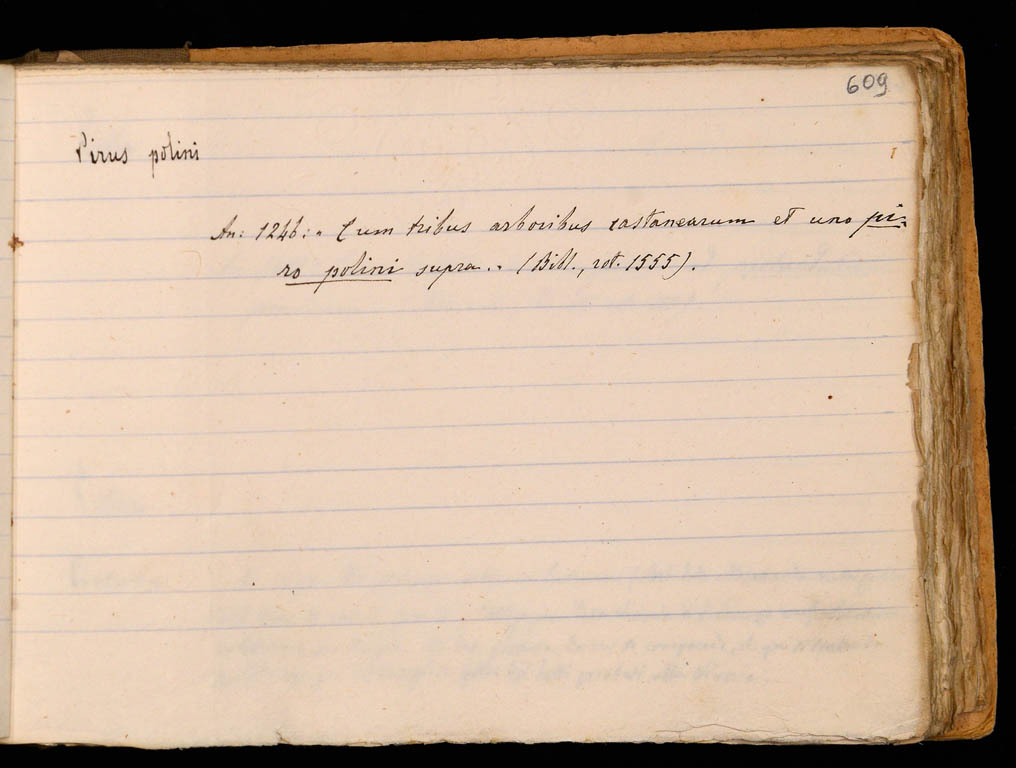 609
Pirus polini
An: 1246: " Cum tribus arboribus castanearum et uno pi-
ro polini supra.. " (Bill., rot. 1555).